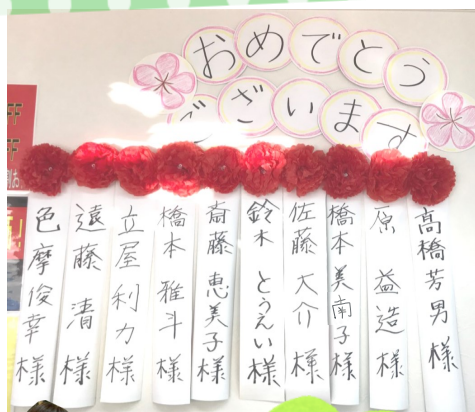 おめでとう
ございます
高橋芳男 様
原 益造 様
橋本 美南子 様
佐藤 大介 様
鈴木 とうえい 様
斎藤 恵美子 様
橋本 雅斗 様
立屋 利力 様
遠藤 清 様
色摩俊幸 様